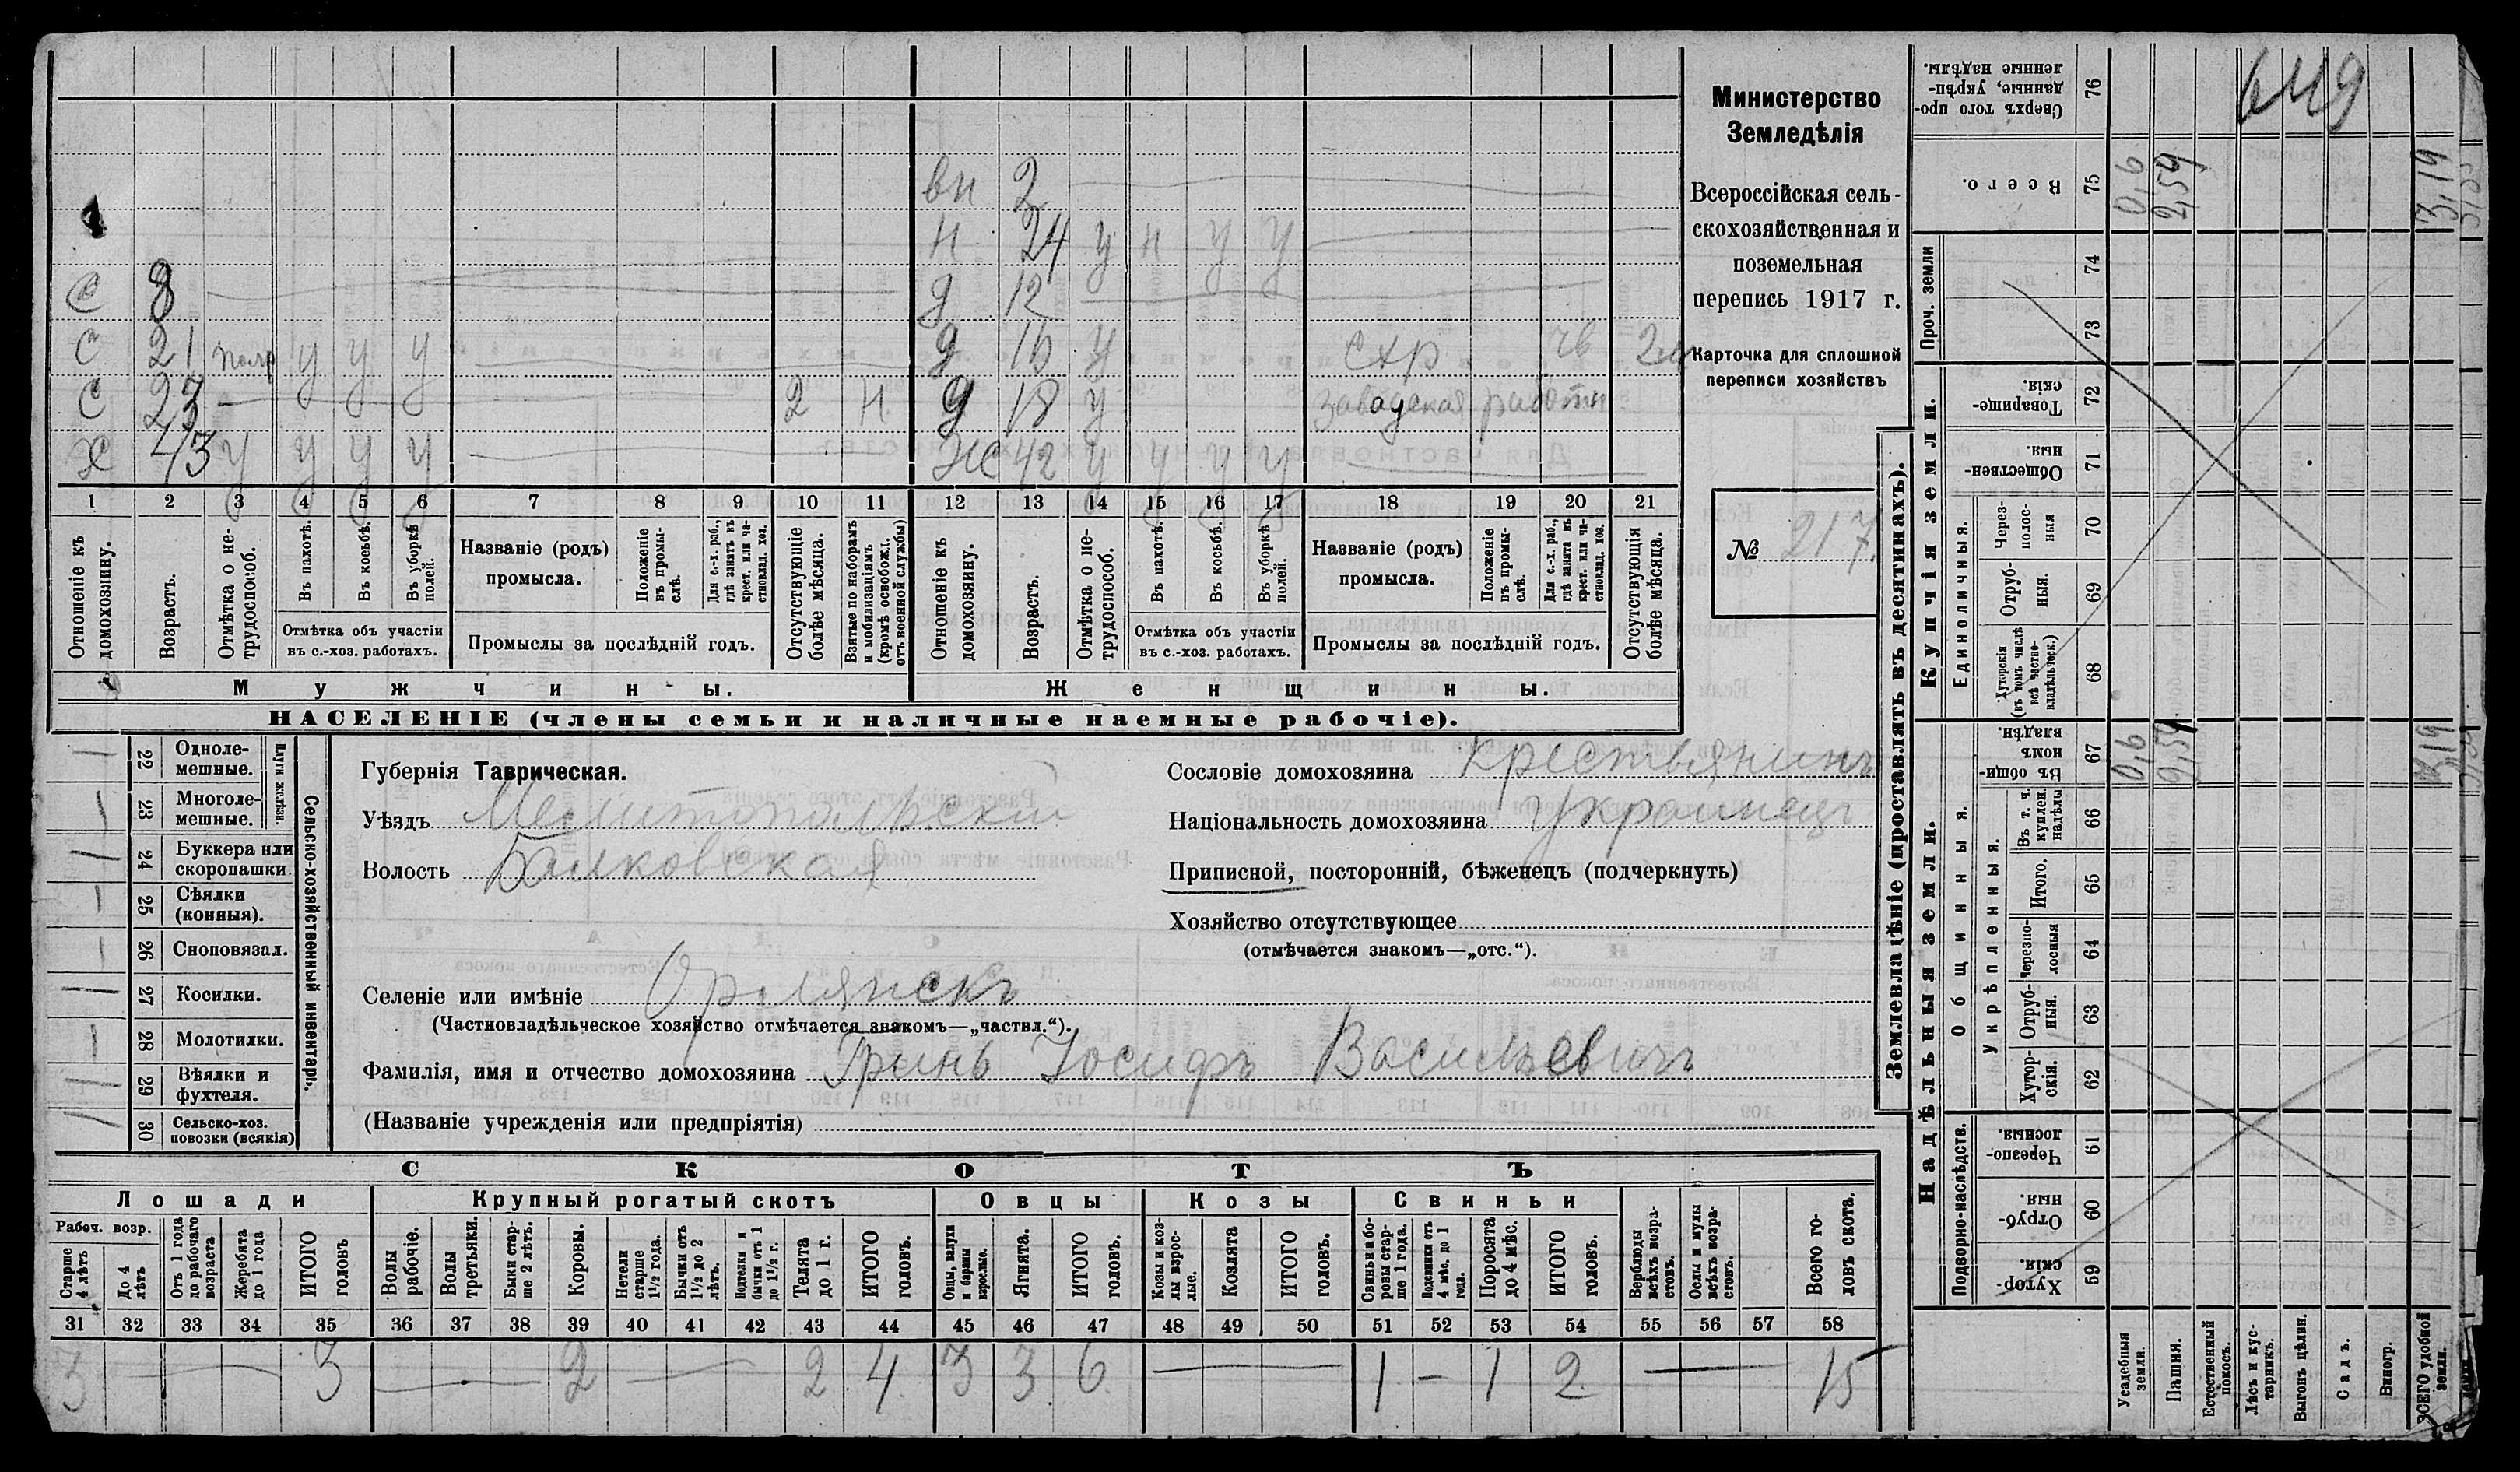 Министерство
Земледѣлія
Всероссійская сель-
скохозяйственная и
поземельная
перепись 1917 г.
Карточка для сплошной
переписи хозяйствъ
№ 217
вн 2
н 24 у н у у
с 8 д 12
с 21 у у у д 16 у схр чв
с 23 2 н д 18 у заводская работн
х 43 у у у у ж 42 у у у у
1 2 3 4 5 6 7 8 9 10 11 12 13 14 15 16 17 18 19 20 21
Отношеніе къ домохозяину.
Возрастъ.
Отмѣтка о не-трудоспособ.
Въ пахотѣ.
Въ косьбѣ.
Въ уборкѣ полей.
Отмѣтка объ участіи
въ с.-хоз. работахъ.
Названіе (родъ)
промысла.
Положеніе въ промы-слѣ.
Для с.-х. раб., гдѣ занятъ въ крест. или ча-стновлад. хоз.
Промыслы за послѣдній годъ.
Отсутствующіе болѣе мѣсяца.
Взятые по наборамъ и мобилизаціямъ (кромѣ освобожд. отъ военной службы)
Отношеніе къ домохозяину.
Возрастъ.
Отмѣтка о не-трудоспособ.
Въ пахотѣ.
Въ косьбѣ.
Въ уборкѣ полей.
Отмѣтка объ участіи
въ с.-хоз. работахъ.
Названіе (родъ)
промысла.
Положеніе въ промы-слѣ.
Для с.-х. раб., гдѣ занята въ крест. или ча-стновлад. хоз.
Промыслы за послѣдній годъ.
Отсутствующія болѣе мѣсяца.
Мужчины.
Женщины.
НАСЕЛЕНІЕ (члены семьи и наличные наемные рабочіе).
Сельско-хозяйственный инвентарь.
Плуги желѣзн.
22 Одноле-мешные.
23 Многоле-мешные.
24 Буккера или скоропашки.
25 Сѣялки (конныя).
26 Сноповязал.
27 Косилки.
28 Молотилки.
29 Вѣялки и фухтеля.
30 Сельско-хоз. повозки (всякія)
Губернія Таврическая.
Уѣздъ Мелитопольскій
Волость Балковская
Сословіе домохозяина крестьянинъ
Національность домохозяина Украинецъ
Приписной, посторонній, бѣженецъ (подчеркнуть)
Хозяйство отсутствующее
(отмѣчается знакомъ—„отс.“).
Селеніе или имѣніе Орлянскъ
(Частновладѣльческое хозяйство отмѣчается знакомъ—„частвл.“).
Фамилія, имя и отчество домохозяина Гринь Іосифъ Васильевичъ
(Названіе учрежденія или предпріятія)
СКОТЪ
Лошади Крупный рогатый скотъ Овцы Козы Свиньи
Рабоч. возр.
Старше 4 лѣтъ
До 4 лѣтъ
Отъ 1 года до рабочаго возраста
Жеребята до 1 года
ИТОГО головъ
Волы рабочіе.
Волы третьяки.
Быки стар-ше 2 лѣтъ.
Коровы.
Нетели старше 1½ года.
Бычки отъ 1½ до 2 лѣтъ.
Подтелки и бычки отъ 1 до 1½ г.
Телята до 1 г.
ИТОГО головъ.
Овцы, валухи и бараны взрослые.
Ягнята.
ИТОГО головъ.
Козы и коз-лы взрос-лые.
Козлята
ИТОГО головъ.
Свиньи и бо-ровы стар-ше 1 года.
Подсвинки отъ 4 мѣс. до 1 года.
Поросята до 4 мѣс.
ИТОГО головъ.
Верблюды всѣхъ возра-стовъ.
Ослы и мулы всѣхъ возра-стовъ.
Всего го-ловъ скота.
31 32 33 34 35 36 37 38 39 40 41 42 43 44 45 46 47 48 49 50 51 52 53 54 55 56 57 58
3 — 3 — 2 — 2 4 3 3 6 — 1 — 1 2 — 15
Землевладѣніе (проставлять въ десятинахъ).
Надѣльныя земли.
Купчія земли.
Проч. земли
Подворно-наслѣдств.
Общинныя.
Укрѣпленныя.
Единоличныя.
76 Сверхъ того про-данные, укрѣп-ленные надѣлы.
75 Всего.
74
73
72 Товарище-скія.
71 Обществен-ныя.
70 Через-полос-ныя
69 Отруб-ныя.
68 Хуторскія (въ томъ числѣ всѣ частно-владѣльческ.)
67 Въ общин-номъ владѣн.
66 Въ т. ч. куплен. надѣлы
65 Итого.
64 Черезпо-лосныя
63 Отруб-ныя.
62 Хутор-скія.
61 Черезпо-лосныя.
60 Отруб-ныя.
59 Хутор-скія.
Усадебныя земли.
Пашня.
Естественный покосъ.
Лѣсъ и кус-тарникъ.
Выгонъ цѣлин.
Садъ.
Виногр.
ВСЕГО удобной земли.
0,6 2,59 3,19
0,6 2,59 3,19